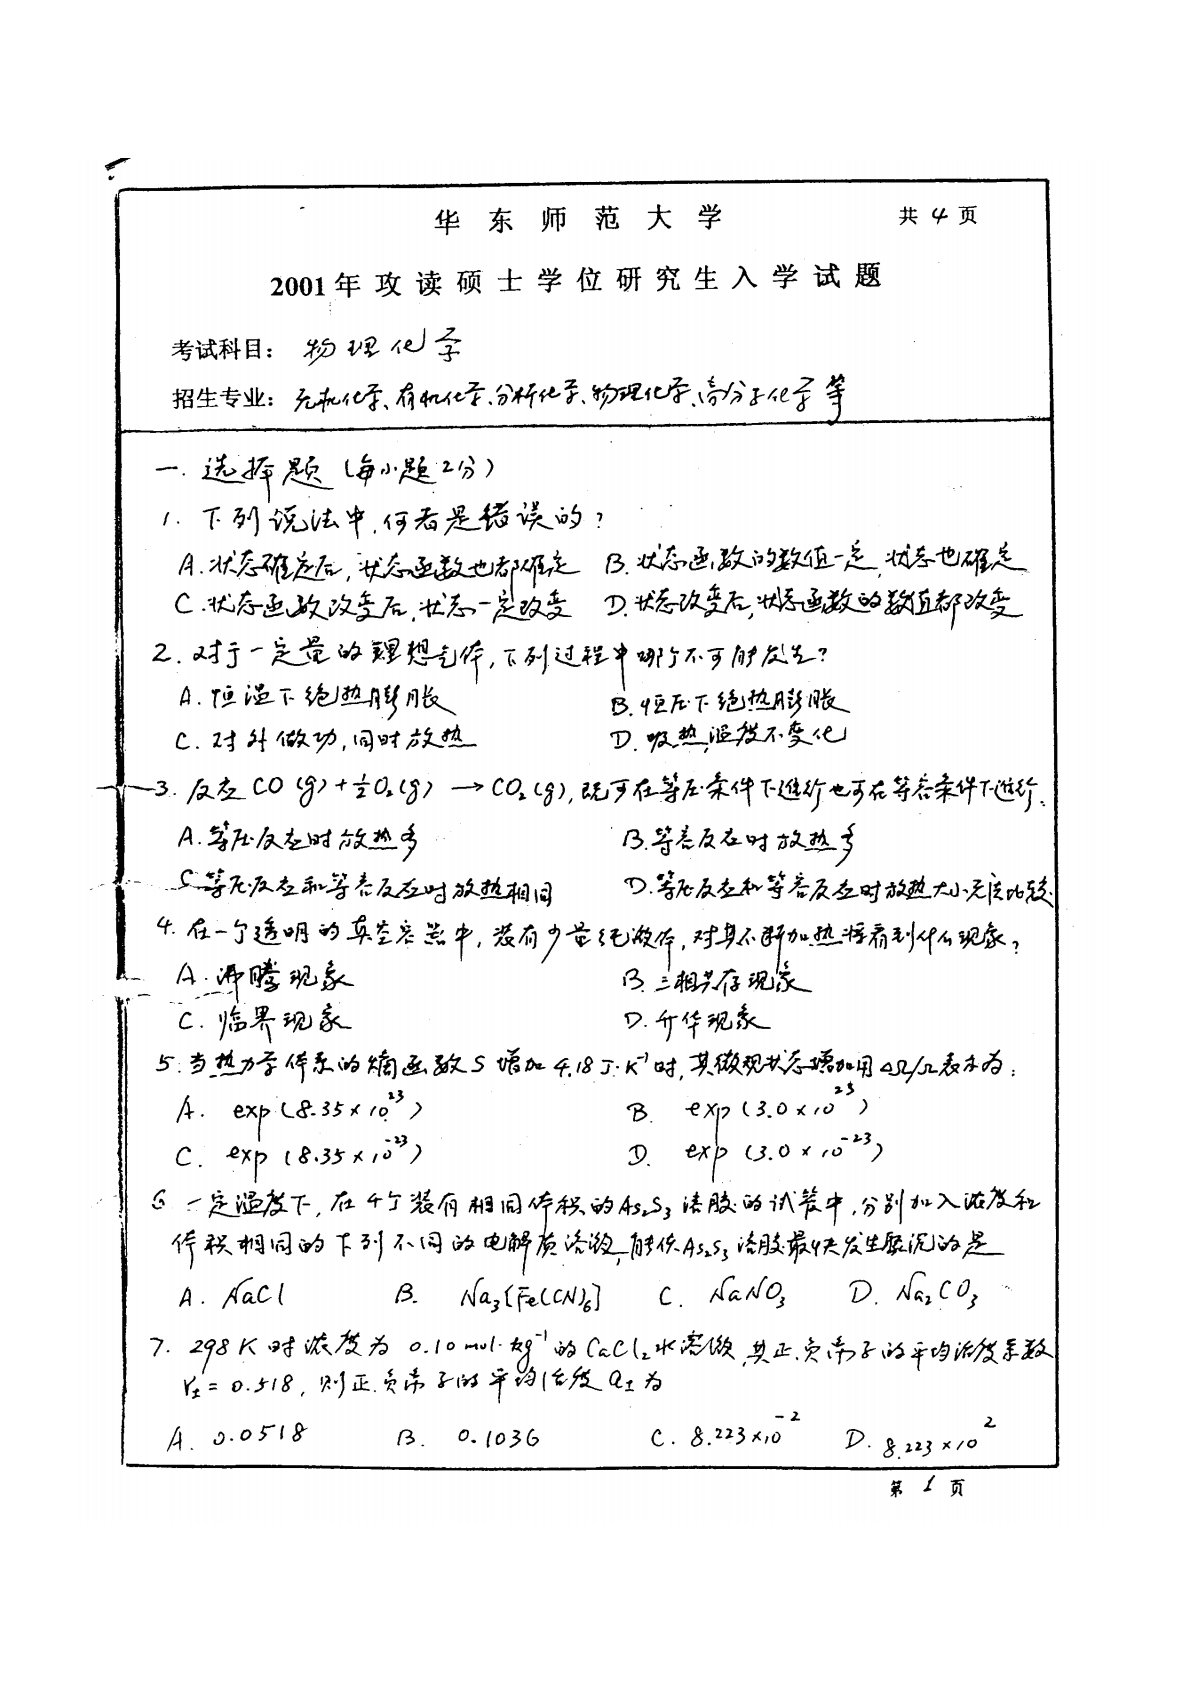 华东师范大学 共4页
2001年攻读硕士学位研究生入学试题
考试科目: 物理化学
招生专业: 无机化学、有机化学、分析化学、物理化学、高分子化学等
一. 选择题 (每小题2分)
1. 下列说法中,何者是错误的?
A.状态确定后,状态函数也都确定 B.状态函数的数值一定,状态也确定
C.状态函数改变后,状态一定改变 D.状态改变后,状态函数的数值都改变
2. 对于一定量的理想气体,下列过程中哪个不可能发生?
A. 恒温下绝热膨胀 B.恒压下绝热膨胀
C. 对外做功,同时放热 D.吸热,温度不变化
3. 反应 CO(g)+½O₂(g) → CO₂(g),既可在等压条件下进行也可在等容条件下进行.
A.等压反应时放热多 B.等容反应时放热多
C.等压反应和等容反应时放热相同 D.等压反应和等容反应时放热大小无法比较
4. 在一个透明的真空容器中,装有少量纯液体,对其不断加热将看到什么现象?
A. 沸腾现象 B.三相共存现象
C. 临界现象 D.升华现象
5. 当热力学体系的熵函数S增加4.18 J·K⁻¹时,其微观状态增加用ΔΩ/Ω表示为:
A. exp(8.35×10²³) B. exp(3.0×10²³)
C. exp(8.35×10⁻²³) D. exp(3.0×10⁻²³)
6 一定温度下,在4个装有相同体积的As₂S₃溶胶的试管中,分别加入浓度和
体积相同的下列不同的电解质溶液,能使As₂S₃溶胶最快发生聚沉的是
A. NaCl B. Na₃[Fe(CN)₆] C. NaNO₃ D. Na₂CO₃
7. 298K时浓度为0.10 mol·kg⁻¹的CaCl₂水溶液,其正.负离子的平均活度系数
γ± = 0.518, 则正.负离子的平均活度a±为
A. 0.0518 B. 0.1036 C. 8.223×10⁻² D. 8.223×10²
第1页